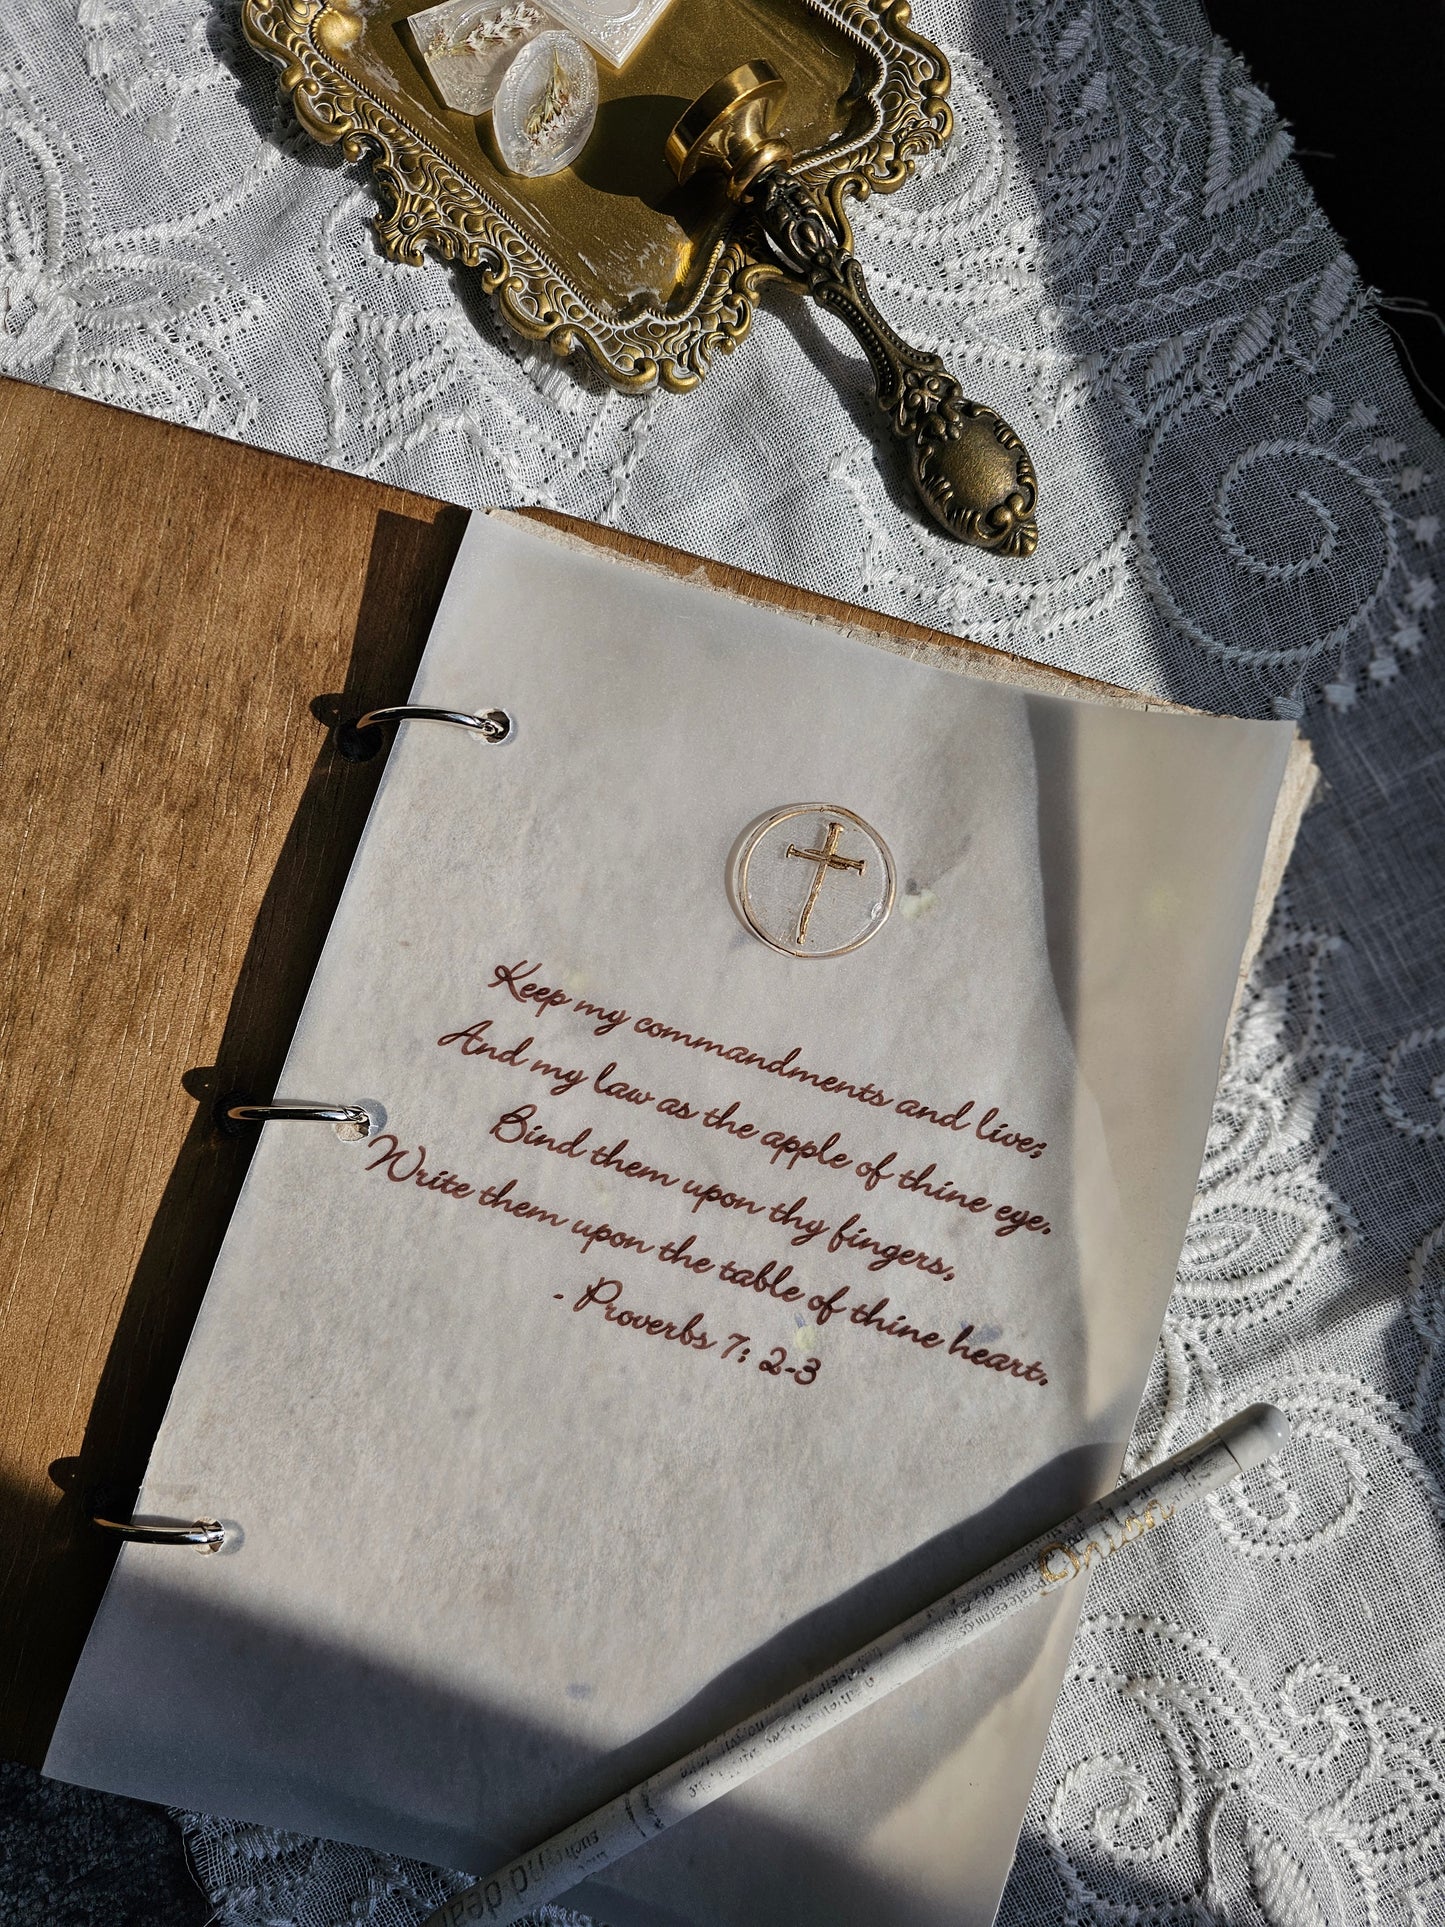 Keep my commandments and live;
And my law as the apple of thine eye.
Bind them upon thy fingers,
Write them upon the table of thine heart.
- Proverbs 7: 2-3
Onion